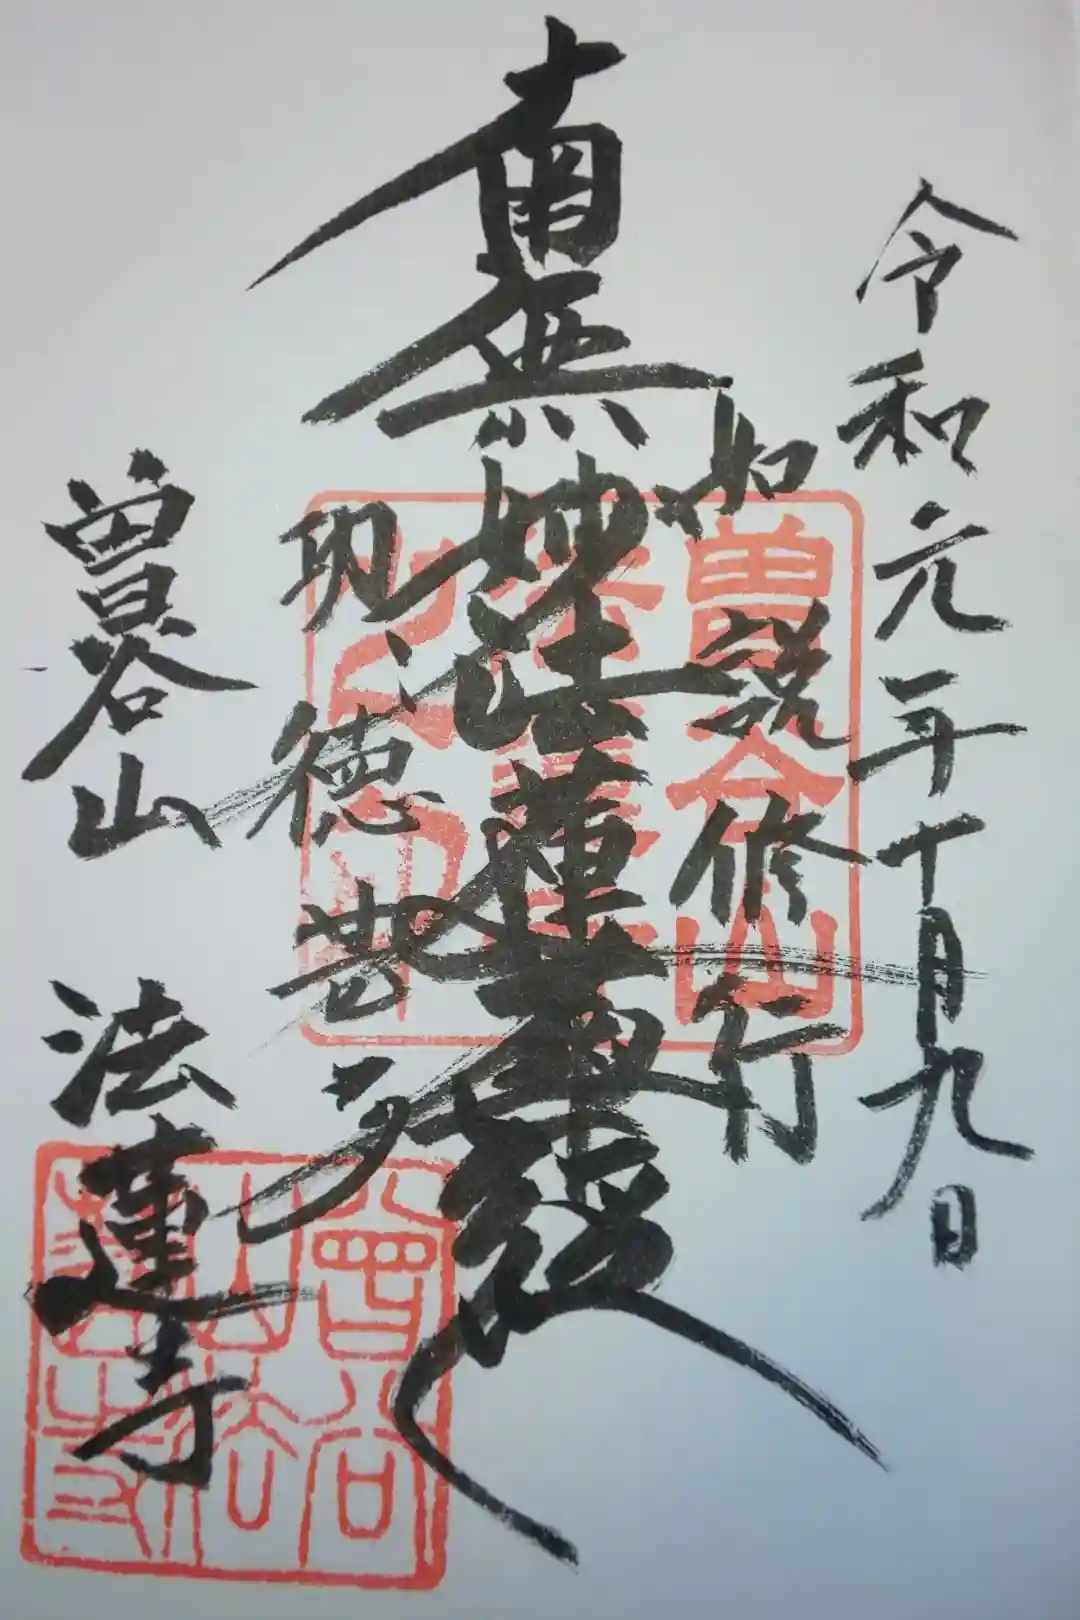 令和元年十月九日
如説修行
南無妙法蓮華経
功徳甚多
曽谷山 法蓮寺
曽谷山